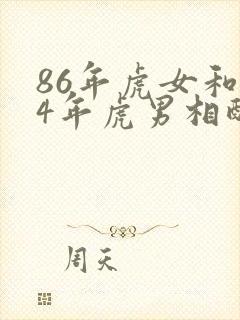 86年虎女和
4年虎男相
周天